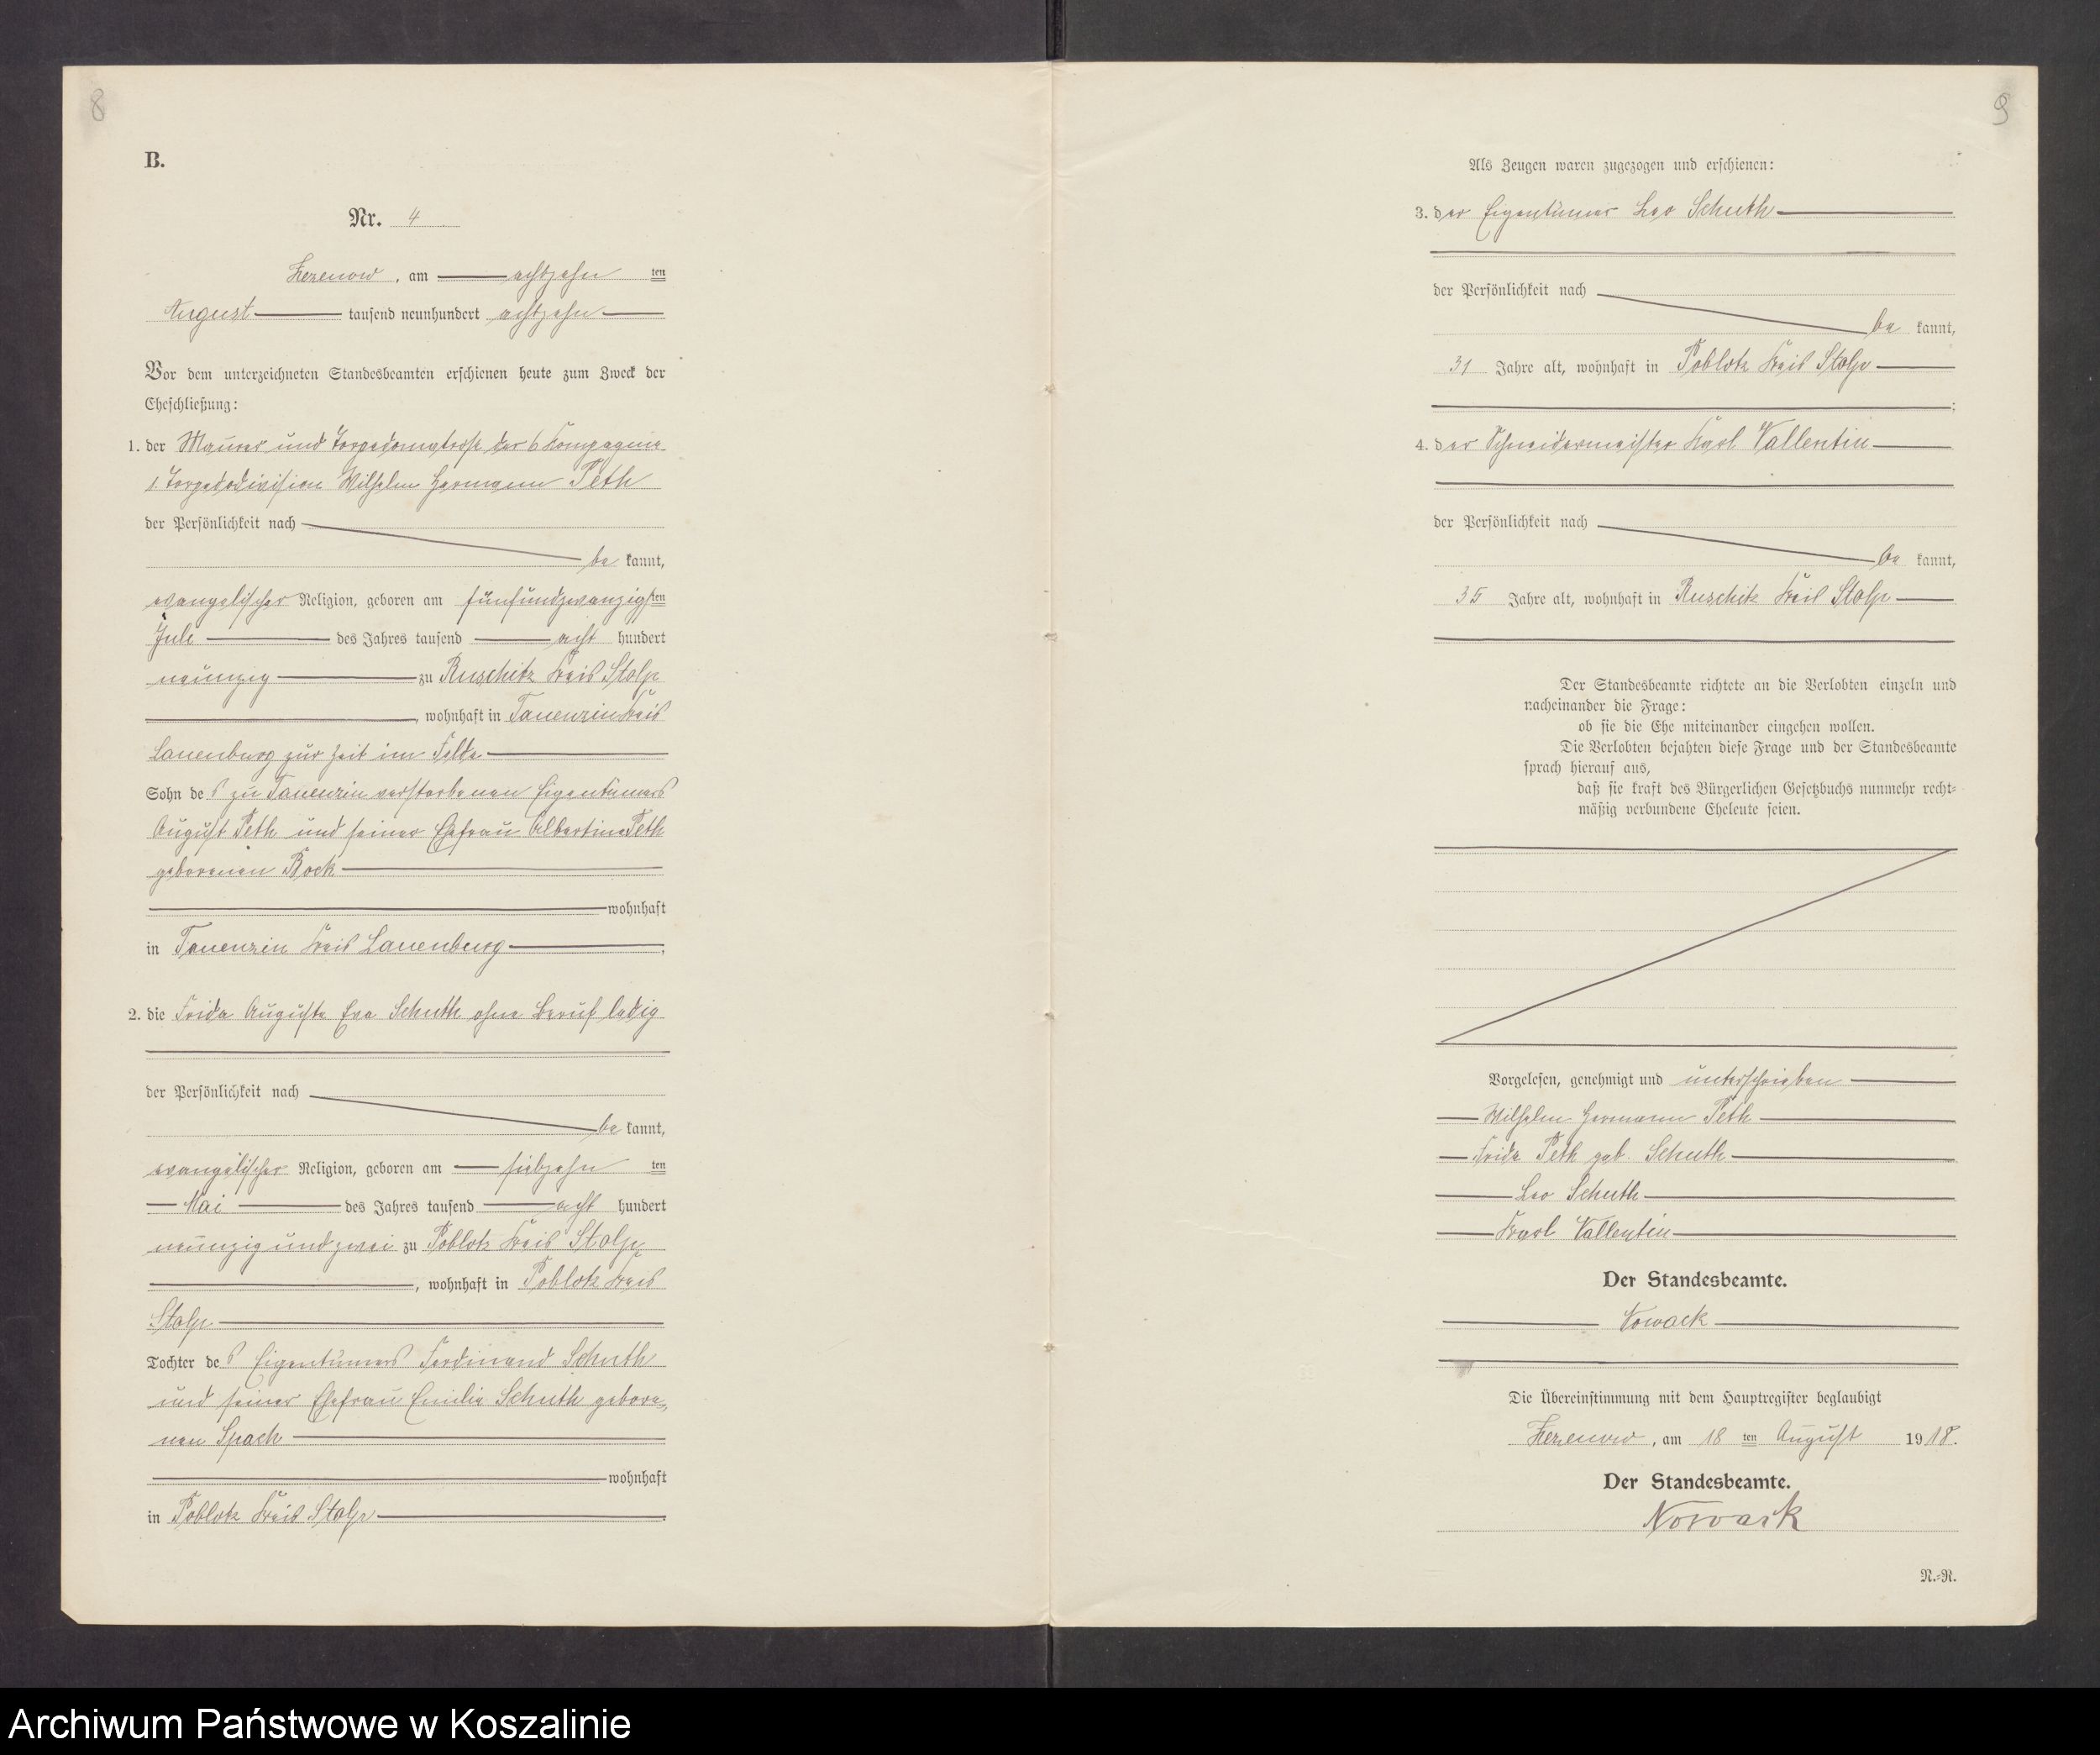 8
B.
Nr. 4
Zezenow, am achtzehn ten
August tausend neunhundert achtzehn
Vor dem unterzeichneten Standesbeamten erschienen heute zum Zweck der
Eheschließung:
1. der Maurer und Torpedomatrose der 6 Kompagnie
1. Torpedodivision Wilhelm Hermann Peth
der Persönlichkeit nach
be kannt,
evangelischer Religion, geboren am fünfundzwanzigsten
Juli des Jahres tausend acht hundert
neunzig zu Ruschitz Kreis Stolp
, wohnhaft in Tauenzin Kreis
Lauenburg zur Zeit im Felde
Sohn des zu Tauenzin verstorbenen Eigentümers
August Peth und seiner Ehefrau Albertine Peth
geborenen Bock
wohnhaft
in Tauenzin Kreis Lauenburg ;
2. die Frida Auguste Eva Schuth ohne Beruf ledig
der Persönlichkeit nach
be kannt,
evangelischer Religion, geboren am siebzehn ten
Mai des Jahres tausend acht hundert
neunzig und zwei zu Poblotz Kreis Stolp
, wohnhaft in Poblotz Kreis
Stolp
Tochter des Eigentümers Ferdinand Schuth
und seiner Ehefrau Emilie Schuth gebore-
nen Spach
wohnhaft
in Poblotz Kreis Stolp .
9
Als Zeugen waren zugezogen und erschienen:
3. der Eigentümer Leo Schuth
der Persönlichkeit nach
be kannt,
31 Jahre alt, wohnhaft in Poblotz Kreis Stolp
;
4. der Schneidermeister Karl Vallentin
der Persönlichkeit nach
be kannt,
35 Jahre alt, wohnhaft in Ruschitz Kreis Stolp
Der Standesbeamte richtete an die Verlobten einzeln und
nacheinander die Frage:
ob sie die Ehe miteinander eingehen wollen.
Die Verlobten bejahten diese Frage und der Standesbeamte
sprach hierauf aus,
daß sie kraft des Bürgerlichen Gesetzbuchs nunmehr recht-
mäßig verbundene Eheleute seien.
Vorgelesen, genehmigt und unterschrieben
Wilhelm Hermann Peth
Frida Peth geb. Schuth
Leo Schuth
Karl Vallentin
Der Standesbeamte.
Nowack
Die Übereinstimmung mit dem Hauptregister beglaubigt
Zezenow, am 18 ten August 1918.
Der Standesbeamte.
Nowack
N.-R.
Archiwum Państwowe w Koszalinie